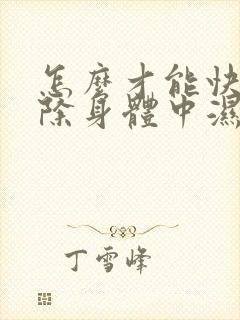 怎麼才能快
除身體中濕
丁雪峰